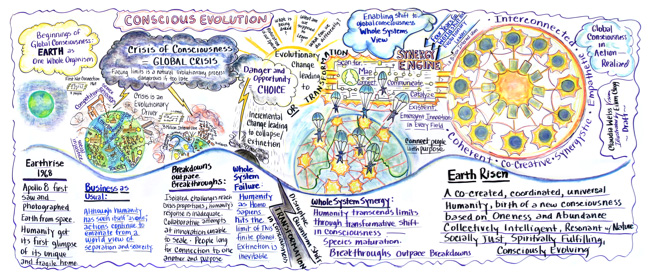 CONSCIOUS EVOLUTION
Beginnings of
Global Consciousness:
EARTH as
One Whole Organism
Crisis of Consciousness
GLOBAL CRISIS
Facing limits is a natural evolutionary process
Crisis is an
Evolutionary
Driver
Danger and
Opportunity
CHOICE
Evolutionary
Change
leading
to
OR TRANSFORMATION
Incremental
change leading
to collapse/
extinction
Enabling Shift to
global consciousness
Whole Systems
View
SYNERGY
ENGINE
Scan for
Map
Connect
Communicate
Catalyze
Emerging Innovation
in Every Field
Connect people
with purpose
Interconnected
Coherent · Co-Creative · Synergistic · Empathic
Global
Consciousness
in
Action -
Realized
Earthrise
1968
Apollo 8 first
saw and
Photographed
Earth from space.
Humanity got
its first glimpse
of its unique
and fragile home.
Business as
Usual:
Although humanity
has seen itself as one,
actions continue to
emanate from a
world view of
separation and scarcity.
Breakdowns
outpace
Breakthroughs:
Isolated challenges reach
crisis proportions, humanity's
response is inadequate.
Collaborative attempts
at innovation unable
to scale - People long
for connection to one
another and purpose
Whole
System
Failure:
Humanity
as Homo
Sapiens
hits the
limit of this
finite planet
Extinction is
inevitable
TRANSFORMATION
Whole System Synergy:
Humanity transcends limits
through transformative shift
in consciousness
Species maturation.
Breakthroughs Outpace Breakdowns
Earth Risen
A co-created, coordinated, universal
Humanity, birth of a new consciousness
based on Oneness and Abundance
Collectively Intelligent, Resonant w/ Nature
Socially Just, Spiritually Fulfilling,
Consciously Evolving